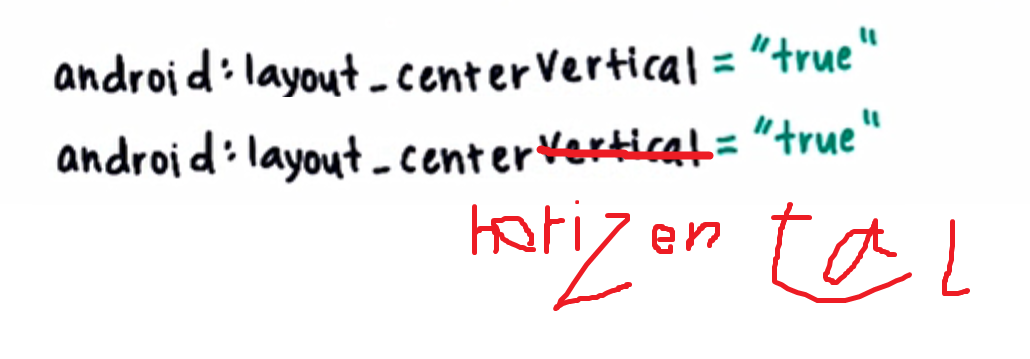 android:layout_centerVertical="true"
android:layout_centerVertical="true"
horizental